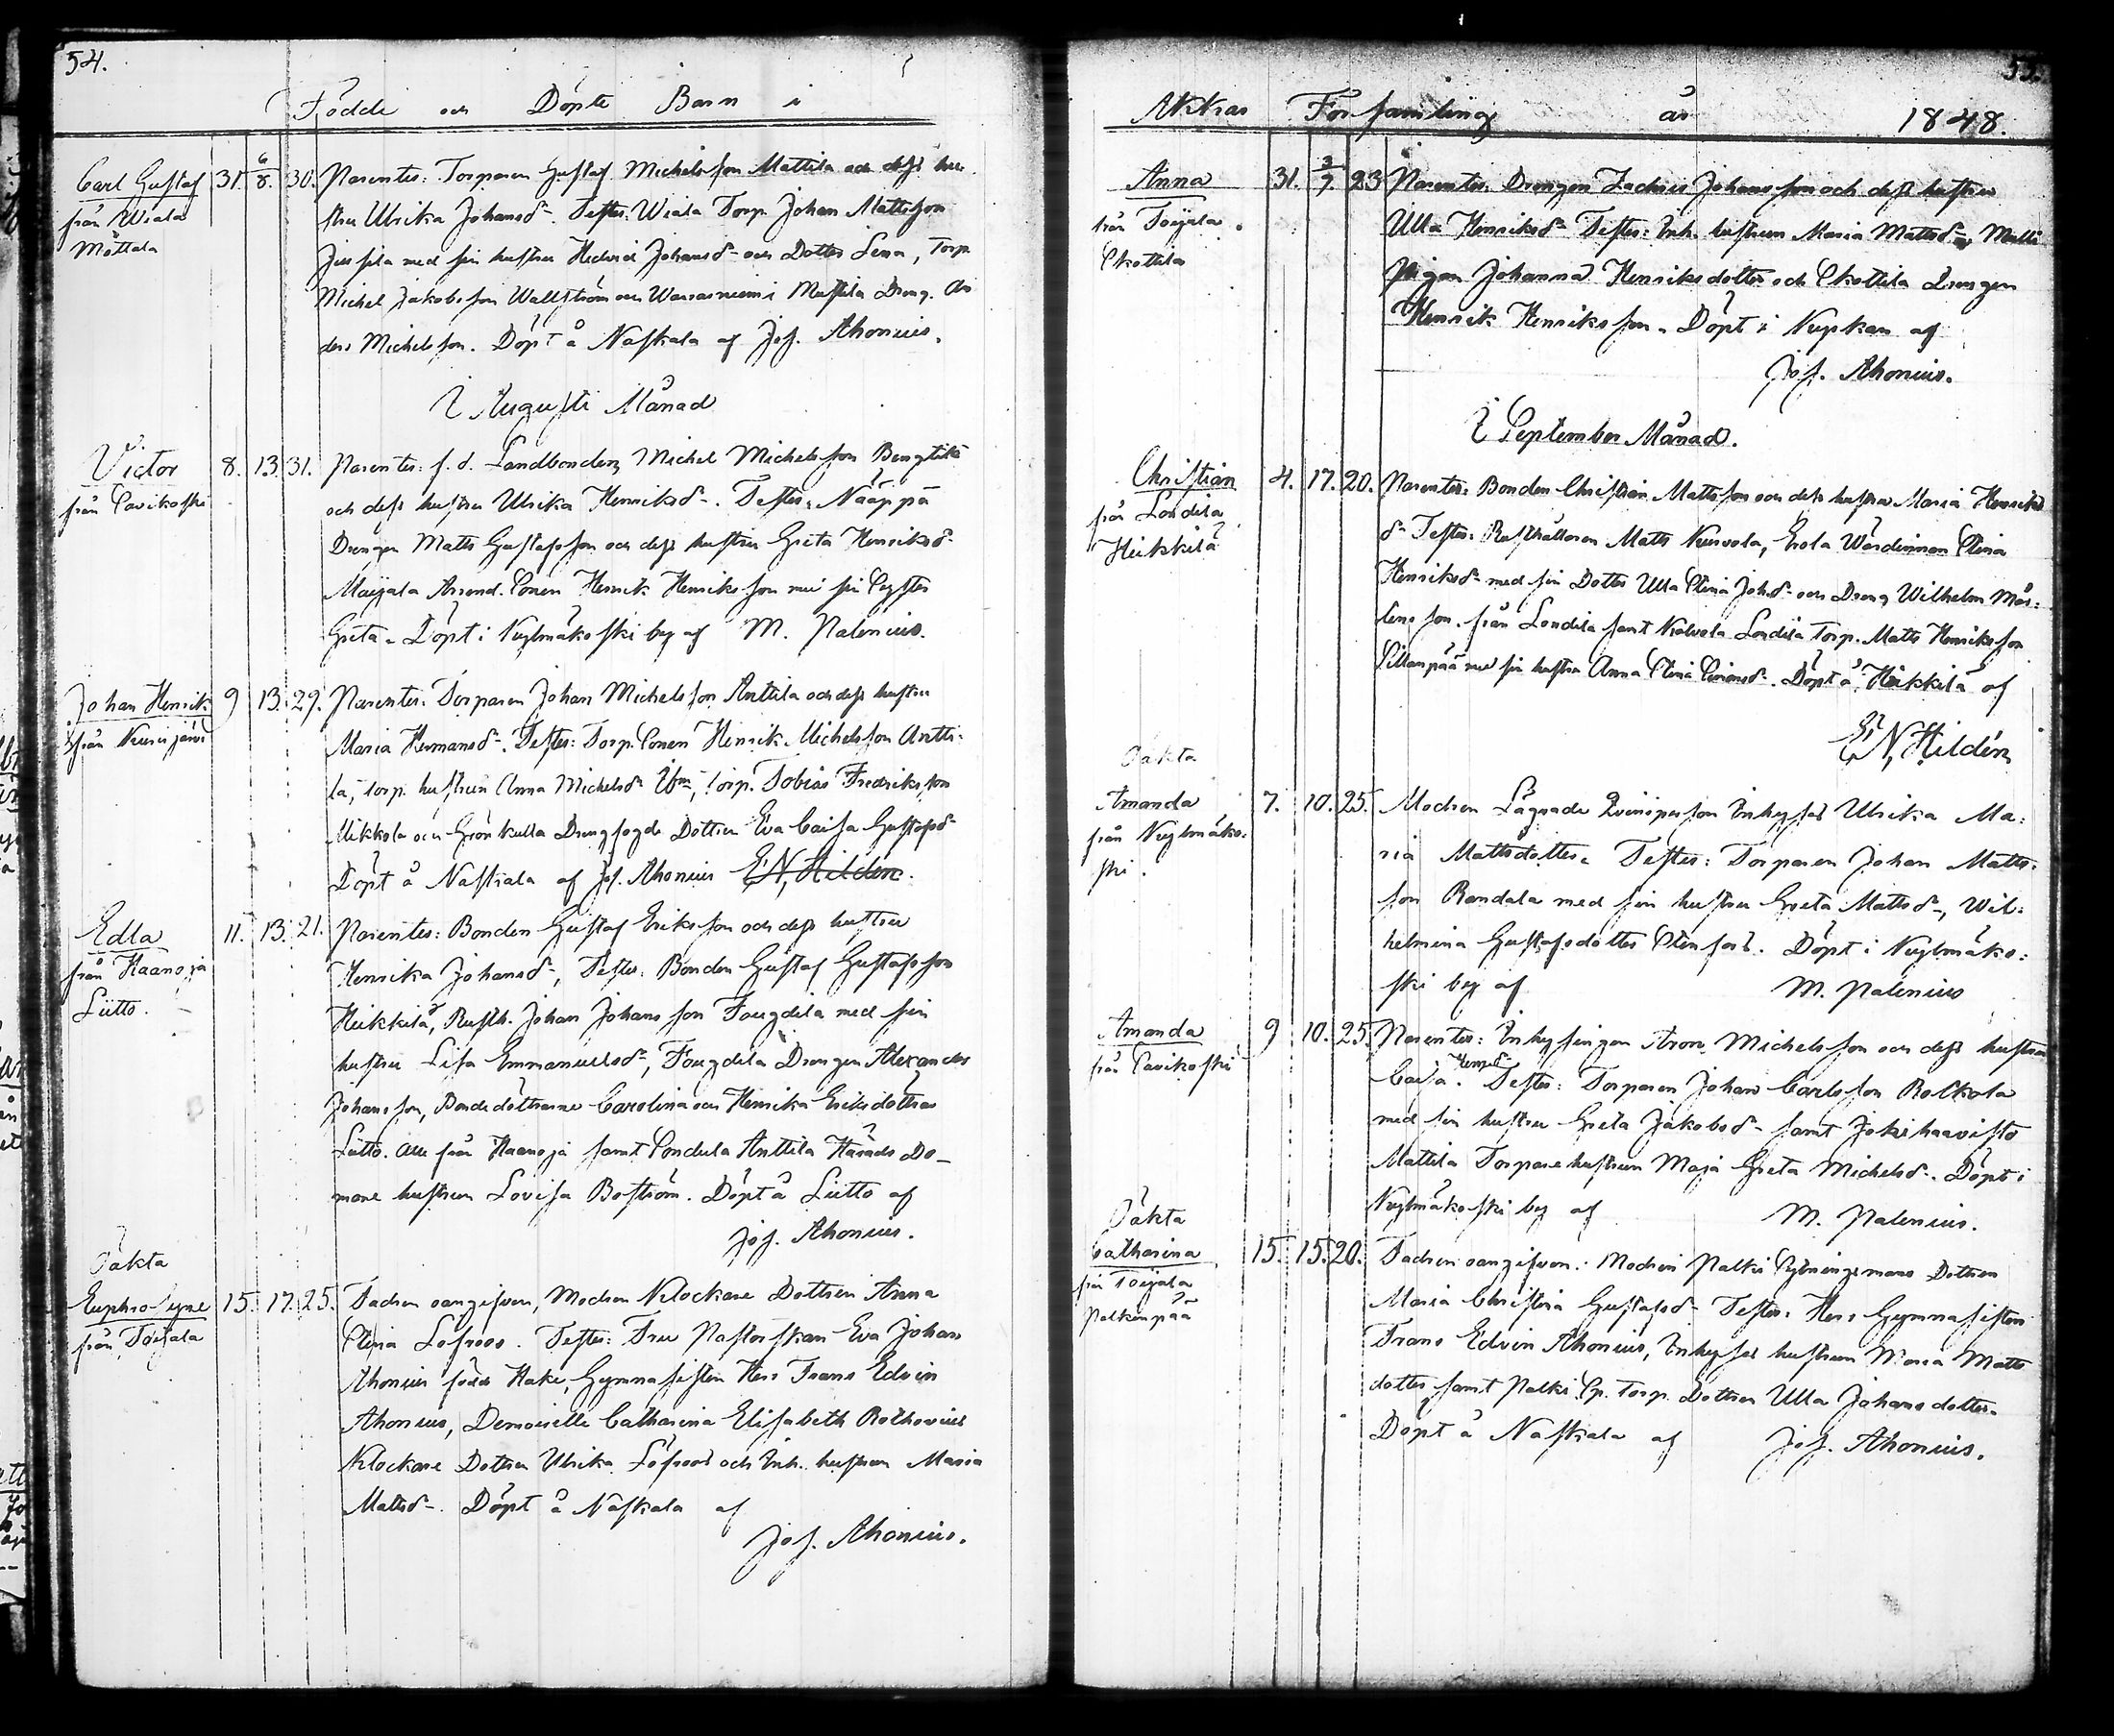 54.
Födde och Döpte Barn i
Carl Gustaf 31. 6/8. 30. Parentes: Torparen Gustaf Michelsson Mattila och dess hu-
från Wiala
Möttala
stru Ulrika Johansd:r Testes: Wiala Torp. Johan Mattsson
Jussila med sin hustru Hedvid Johansd:r och Dotter Lena, Torp.
Michel Jakobsson Wallström och Mattila Dreng. An
ders Michelsson. Döpt å Naskala af Jos. Ahonius.
I Augusti Månad
Victor 8. 13. 31. Parentes: f.d. Landbonden Michel Michelsson Bengtilä
från Savikoski
och dess hustru Ulrika Henriksd:r. Testes: Nääppä
Drengen Matts Gustafsson och dess hustru Greta Henriksd:r
Maijala Arrend. Sonen Henrik Henriksson med sin Syster
Greta. Döpt i Kylmäkoski by af M. Palenius.
Johan Henrik 9 13. 29. Parentes: Torparen Johan Michelsson Anttila och dess hustru
från Kurisjärvi
Maria Hermansd:r. Testes: Torp. Sonen Henrik Michelsson Antti-
la, torp. hustrun Anna Michelsd:r, torp. Tobias Fredriksson
Mikkola och Grönkulla Drengfogde Dottren Eva Caisa Gustafsd:r
Döpt å Naskala af Jos. Ahonius E. N. Hildén.
Edla 11. 13. 21. Parentes: Bonden Gustaf Eriksson och dess hustru
från Haanoja
Liitto.
Henrika Johansd:r, Testes: Bonden Gustaf Gustafsson
Heikkilä, Rusth. Johan Johansson Fougdila med sin
hustru Lisa Emmanuelsd:r, Fougdila Drengen Alexander
Johansson, Bondedöttrarne Carolina och Henrika Eriksdöttrar
Liitto. alla från Haanoja samt Sondula Anttila Härads Do-
mare hustrun Lovisa Boström. Döpt å Liitto af
Jos. Ahonius.
Oäkta
Euphrosyne 15. 17. 25. Fadren oangifven, Modren Klockare Dottren Anna
från Toijala
Stina Lofroos. Testes: Fru Pastorskan Eva Johan
Ahonius född Hake, Gymnasisten Herr Frans Edvin
Ahonius, Demoiselle Catharina Elisabeth Rothovius
Klockare Dottren Ulrika Löfroos och Inh. hustrun Maria
Mattsd:r. Döpt å Naskala af
Jos. Ahonius.
55.
Akkas Församling år 1848.
Anna 31. 3/9. 23 Parentes: Drengen Zachris Johansson och dess hustru
från Toijala
Skottila
Ulla Henriksd:r Testes: Inh. hustrun Maria Mattsd:r, Matti
Pigan Johanna Henriksdotter och Skottila Drengen
Henrik Henriksson. Döpt i Kyrkan af
Jos. Ahonius.
I September Månad.
Christian 4. 17. 20. Parentes: Bonden Christian Mattsson och dess hustru Maria Henriks
från Sondila
Heikkilä
d:r Testes: Rusthållaren Matts Kurvola, Erola Värdinnan Stina
Henriksd:r med sin Dotter Ulla Stina Johd:r och Dreng Wilhelm Mår-
tensson från Sondila samt Kalvola Sondila Torp. Matts Henriksson
Sillanpää med sin hustru Anna Stina Simonsd:r. Döpt å Heikkilä af
E. N. Hildén
Oäkta
Amanda 7. 10. 25. Modren Lägrade Qvinsperson Inhyses Ulrika Ma-
från Kylmäko-
ski.
ria Mattsdotter. Testes: Torparen Johan Matts-
son Randala med sin hustru Greta Mattsd:r, Wil-
helmina Gustafsdotter Stenfors. Döpt i Kylmäko-
ski by af M. Palenius
Amanda 9 10. 25 Parentes: Inhysingen Aron Michelsson och dess hustru
från Savikoski
Caisa Henr.d:r Testes: Torparen Johan Carlsson Rolkala
med sin hustru Greta Jakobsd:r samt Jokihaavisto
Mattila Torpare hustrun Maja Greta Michelsd:r. Döpt i
Kylmäkoski by af M. Palenius.
Oäkta
Catharina 15. 15. 20. Fadren oangifven. Modren Palki Sytningsmans Dottren
från Toijala
Palkinpää
Maria Christina Gustafsd:r Testes: Herr Gymnasisten
Frans Edvin Ahonius, Inhyses hustrun Maria Matts
dotter samt Palki Sp. Torp. Dottren Ulla Johansdotter.
Döpt å Naskala af Jos. Ahonius.